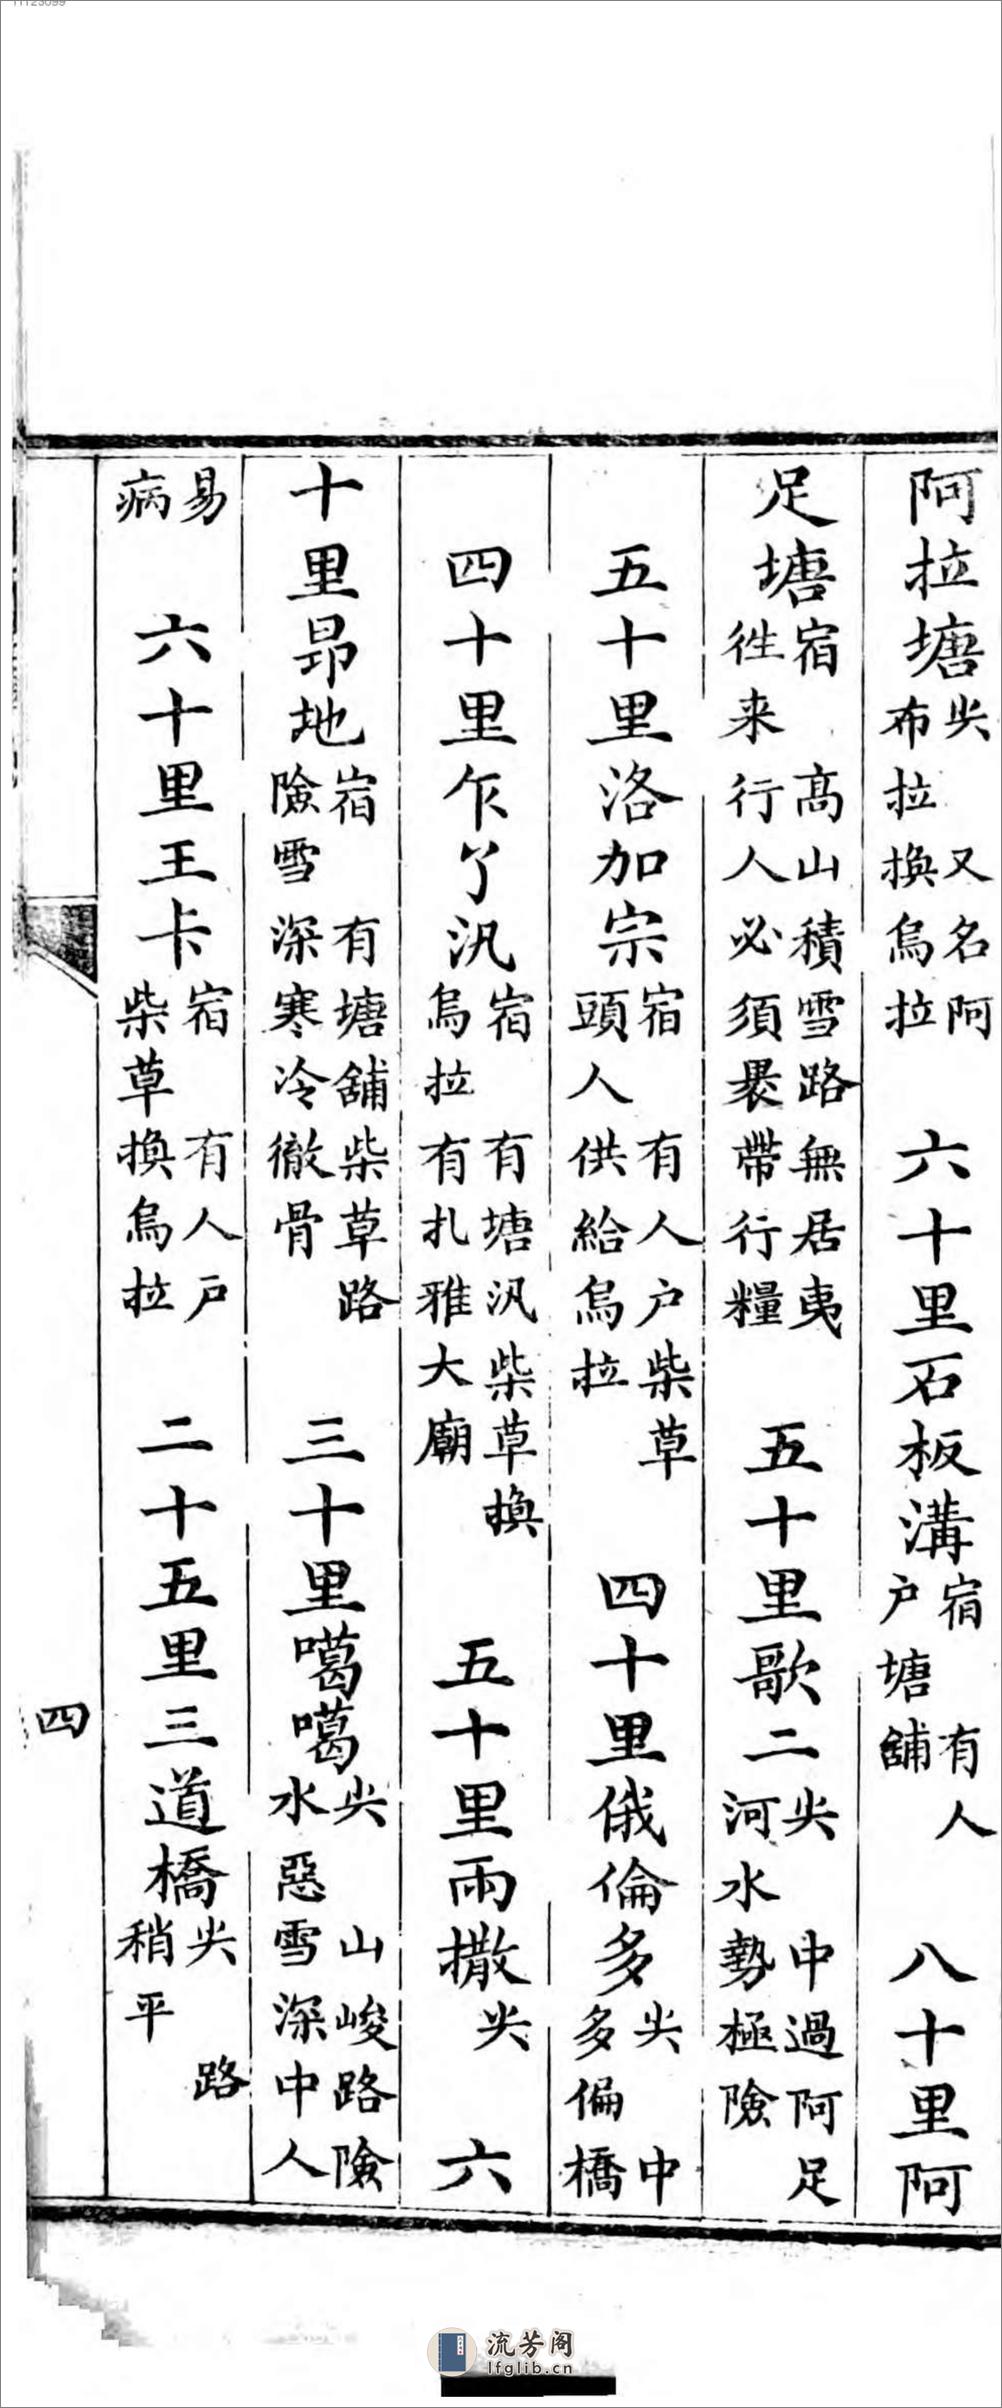 阿拉塘尖 又名阿布拉換烏拉 六十里石板溝宿 有人户塘舖 八十里阿
足塘宿 高山積雪路無居夷徃来行人必須褁帶行糧 五十里歌二尖 中過阿足河水勢極險
五十里洛加宗宿 有人户柴草頭人供給烏拉 四十里俄倫多尖 中多偏橋
四十里乍丫汛宿 有塘汛柴草換烏拉有扎雅大廟 五十里雨撒尖 六
十里昂地宿 有塘舖柴草路險雪深寒冷徹骨 三十里噶噶尖 山峻路險水惡雪深中人
易病 六十里王卡宿 有人户柴草換烏拉 二十五里三道橋尖 路稍平
四
流芳阁
lfglib.cn